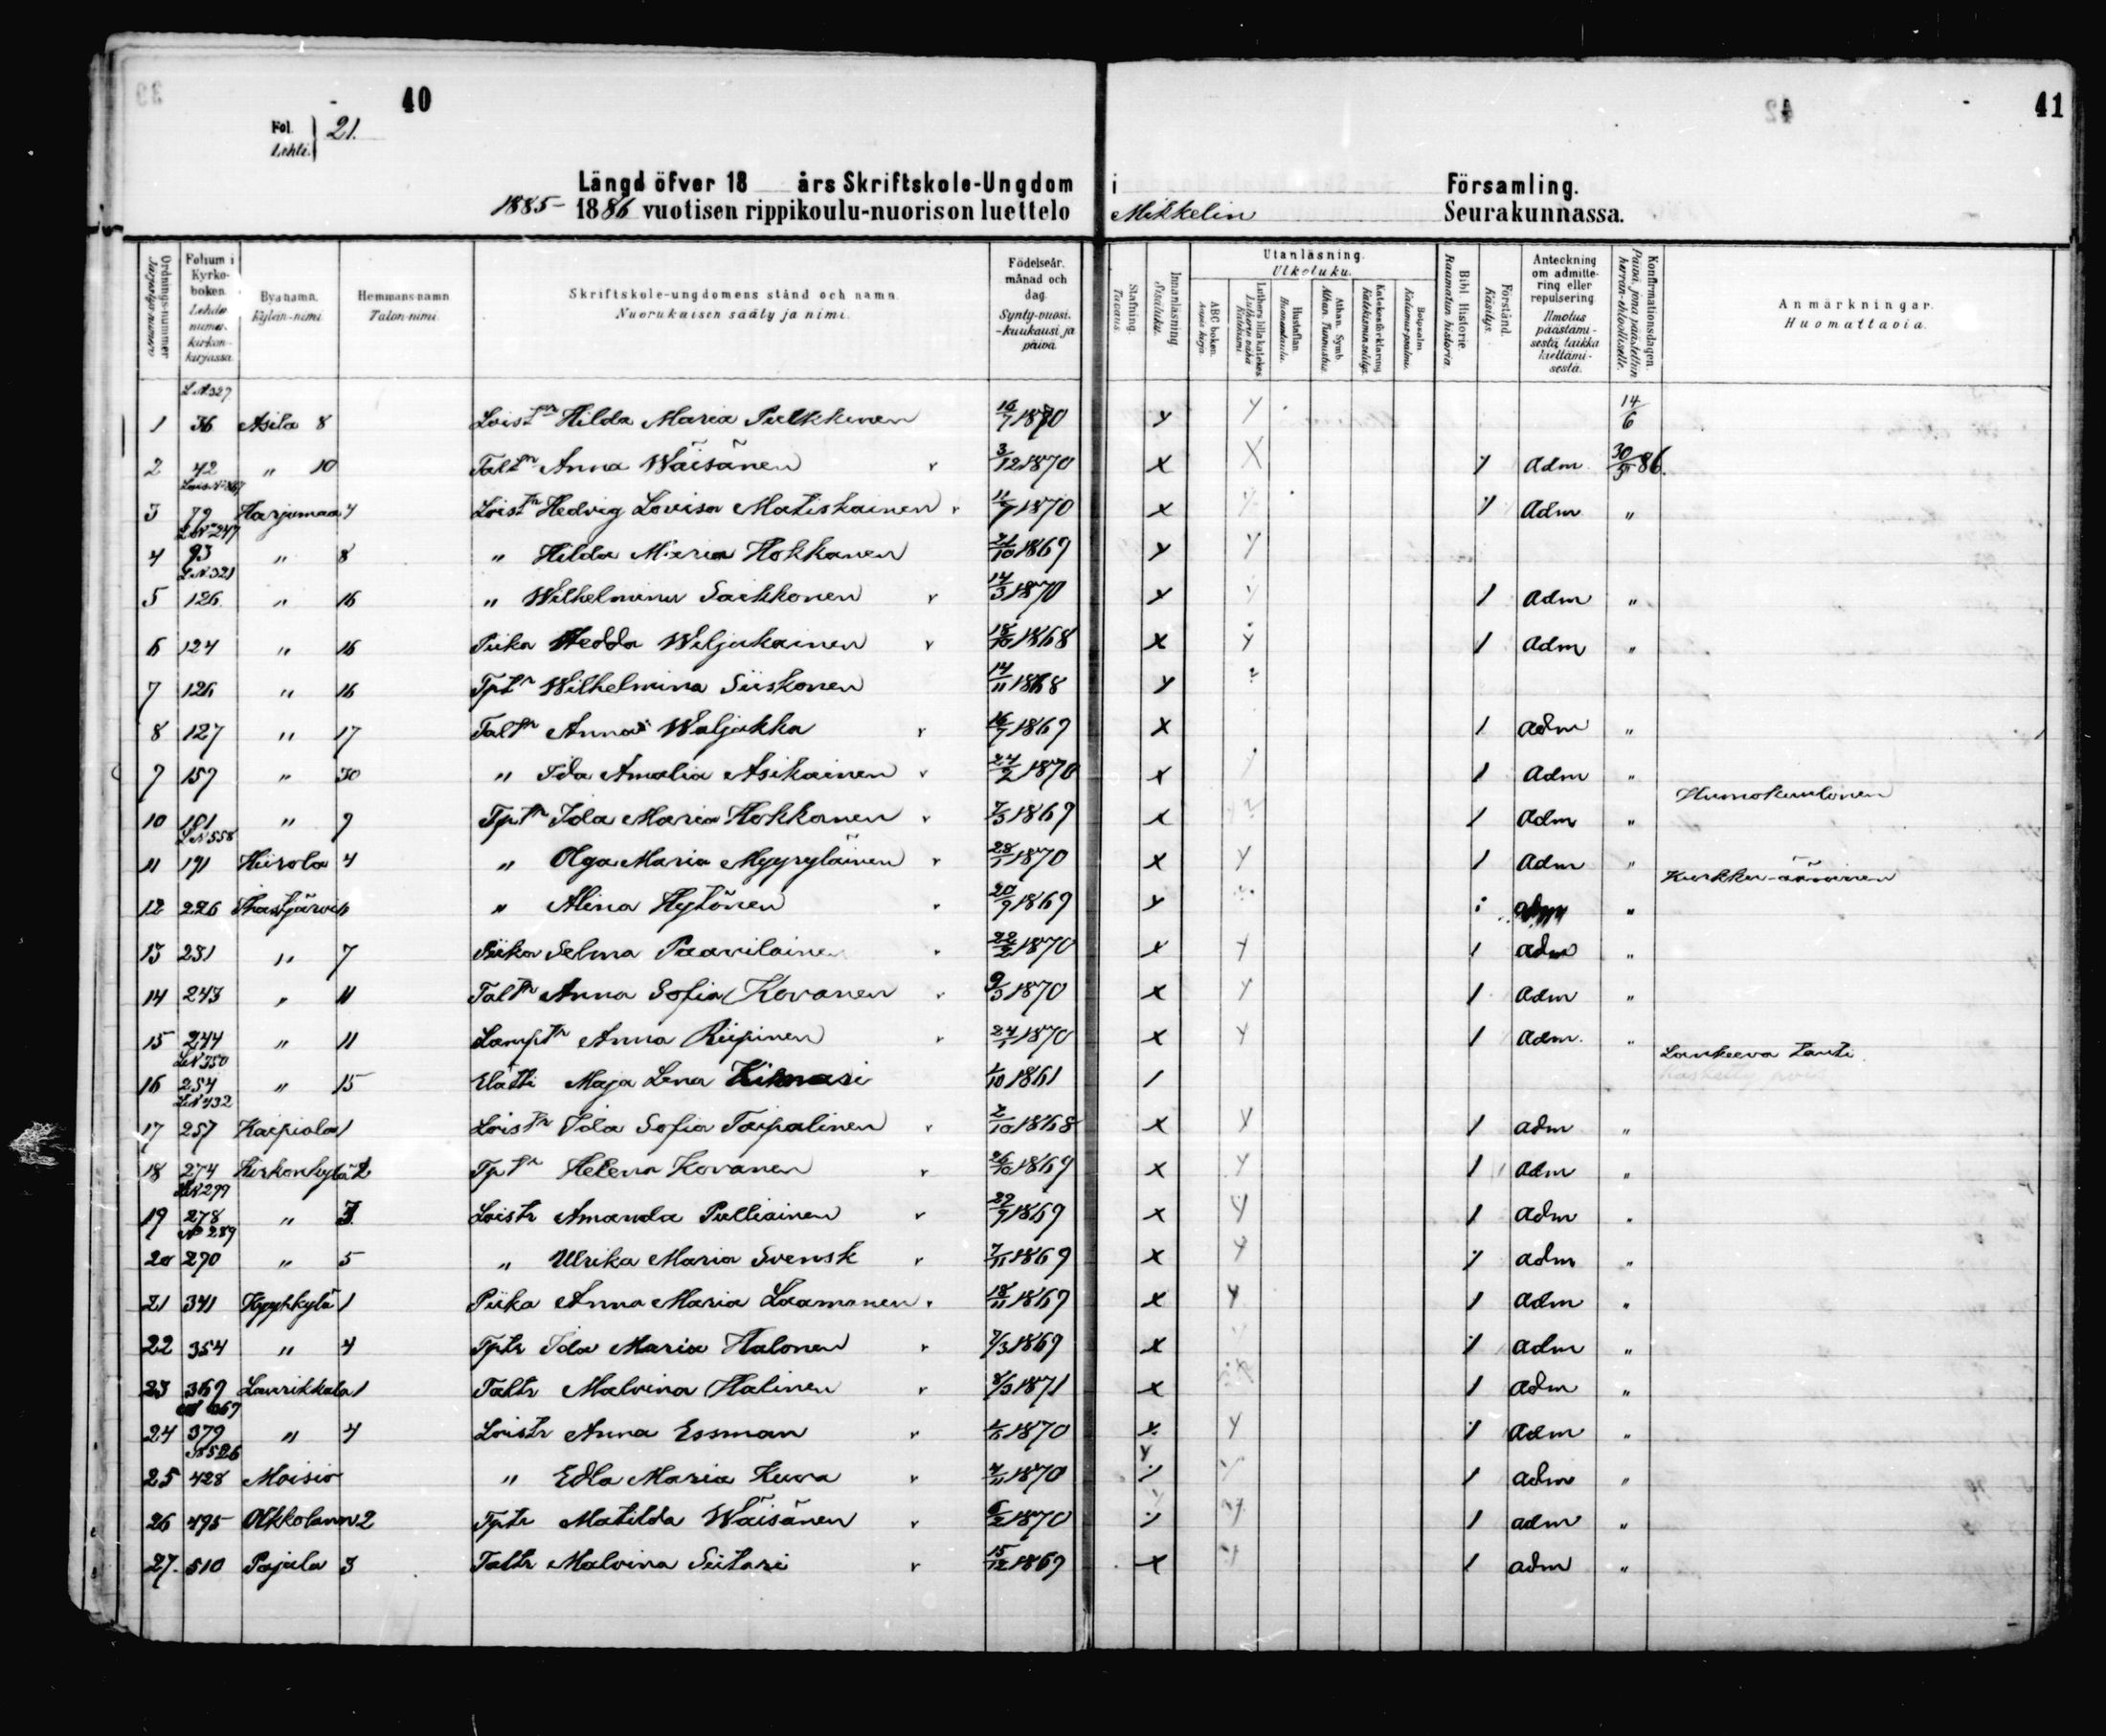 40
41
Fol.
Lehti.} 21.
Längd öfver 18 års Skriftskole-Ungdom i Församling.
1885-1886 vuotisen rippikoulu-nuorison luettelo Mikkelin Seurakunnassa.
Ordnings-nummer Folium i Kyrkoboken. Byanamn. Hemmansnamn Skriftskole-ungdomens stånd och namn. Födelseår, månad och dag.
Järjestys-numero Lehden numero kirkonkirjassa. Kylän-nimi. Talon-nimi. Nuorukaisen sääty ja nimi. Synty-vuosi, -kuukausi ja päivä.
Stafning. Innanläsning. Utanläsning. Bibl Historie. Förstånd. Anteckning om admittering eller repulsering Konfirmationsdagen. Anmärkningar.
Tavaus. Sisäluku. Ulkoluku. Raamatun historia. Käsitys. Ilmotus päästämisestä taikka kieltämisestä. Päivä, jona päästettiin herran-ehtoolliselle. Huomattavia.
ABC boken. Luthers lilla katekes Hustaflan. Athan. Symb. Katekesförklaring Botpsalm.
Aapis kirja. Lutheron vähä Katekismi Huoneentaulu. Athan. Tunnustus. Katekismun selitys. Katumus-psalmi.
L.N.327
1 36 Asila 8 Loistr Hilda Maria Pulkkinen 16/7 1870 14/6
2 42 " 10 Taltr Anna Wäisänen 3/12 1870 Adm 30/5 86.
3 79 Harjumaa 4 Loistr Hedvig Lovisa Matiskainen 11/9 1870 Adm "
L.N 247
4 93 " 8 " Hilda Maria Hokkanen 21/10 1869
L.N.321
5 126 " 16 " Wilhelmina Saikkonen 14/3 1870 Adm "
6 124 " 16 Piika Hedda Weljakainen 18/10 1868 Adm "
7 126 " 16 Tptr Wilhelmina Siiskonen 14/11 1868
8 127 " 17 Taltr Anna Waljakka 16/7 1869 Adm "
9 159 " 30 " Ida Amalia Asikainen 24/2 1870 Adm "
10 181 " 9 Tptr Ida Maria Hokkanen 7/3 1869 Adm " Humokuulonen
L.N 558
11 191 Hiirola 4 " Olga Maria Myyryläinen 28/1 1870 Adm "
12 226 6 " Alina Hytönen 20/9 1869 adm " Kurkku-ääninen
13 231 " 7 Piika Selma Paavilainen 22/2 1870 adm "
14 243 " 11 Taltr Anna Sofia Kovanen 9/3 1870 Adm "
15 244 " 11 Lamptr Anna Riipinen 24/1 1870 Adm. "
L.N 350
16 254 " 15 Elätti Maja Lena 1/10 1861 Lankeeva tauti.
L.N 432
17 257 Karpiola 1 Loistr Ida Sofia Taipalinen 2/10 1868 adm "
18 274 Kirkonkylä 2 Tptr Helena Kovanen 26/10 1869 Adm "
L.N 299
19 278 " 3 Loistr Amanda Pulliainen 29/9 1869 Adm "
N 289
20 290 " 5 " Ulrika Maria Svensk 7/11 1869 adm "
21 341 Kyyhkylä 1 Piika Anna Maria Laamanen 18/11 1869 Adm "
22 354 " 4 Tptr Ida Maria Halonen 7/3 1869 adm "
23 369 Laurikkala 1 Taltr Malvina Halinen 8/3 1871 Adm "
24 379 " 4 Loistr Anna Essman 1870 Adm "
N 526
25 428 Moisio " Edla Maria Kuva 4/11 1870 adm "
26 495 Olkkolanm 2 Tptr Matilda Wäisänen 6/2 1870 adm "
27. 510 Pajala 3 Taltr Malvina Siitari 15/12 1869 adm "